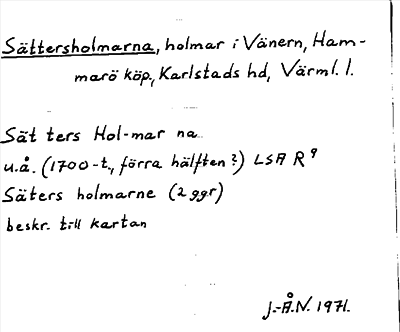 Sättersholmarna, holmar i Vänern, Ham-
marö köp., Karlstads hd, Värml. l.
Sät ters Hol-mar na
u.å. (1700-t., förra hälften?) LSA R⁹
Säters holmarne (2 ggr)
beskr. till kartan
J.-Å.N. 1971.